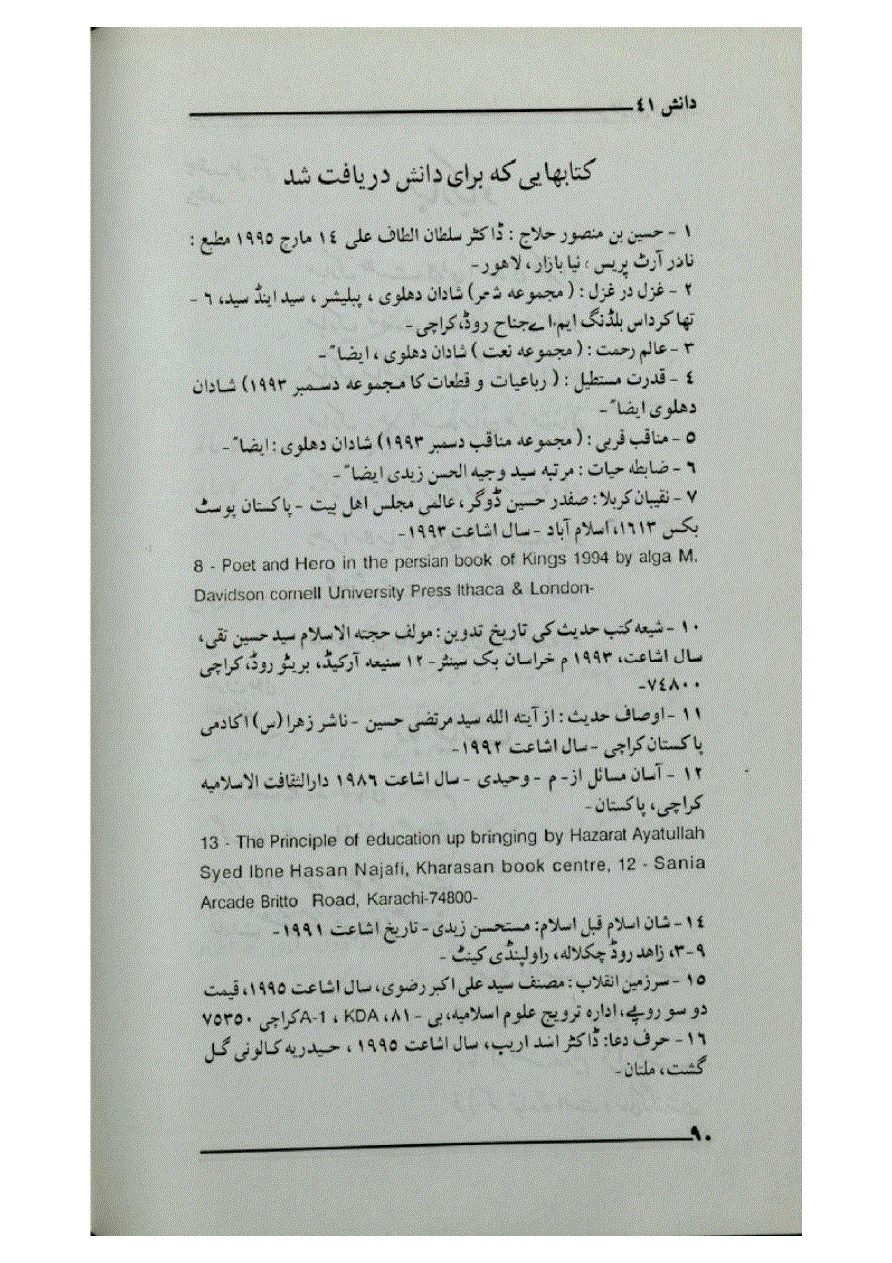 دانش ٤١
کتابهایی که برای دانش دریافت شد
١ - حسین بن منصور حلاج : ڈاکٹر سلطان الطاف علی ١٤ مارچ ١٩٩٥ مطبع :
نادر آرٹ پریس ، نیا بازار ، لاهور-
٢ - غزل در غزل : ( مجموعه شعر) شادان دهلوی ، پبلیشر ، سید اینڈ سید، ٦ -
تھا کرداس بلڈنگ ایم.اے جناح روڈ،کراچی -
٣ - عالم رحمت : ( مجموعه نعت ) شادان دهلوی ، ایضا" -
٤ - قدرت مستطیل : ( رباعیات و قطعات کا مجموعه دسمبر ١٩٩٣) شادان
دهلوی ایضا" -
٥ - مناقب قربی : ( مجموعه مناقب دسمبر ١٩٩٣) شادان دهلوی : ایضا" -
٦ - ضابطه حیات : مرتبه سید وجیه الحسن زیدی ایضا" -
٧ - نقیبان کربلا: صفدر حسین ڈوگر، عالمی مجلس اهل بیت - پاکستان پوسٹ
بکس ١٦١٣، اسلام آباد - سال اشاعت ١٩٩٣ -
8 - Poet and Hero in the persian book of Kings 1994 by alga M.
Davidson cornell University Press Ithaca & London-
١٠ - شیعه کتب حدیث کی تاریخ تدوین : مولف حجته الاسلام سید حسین تقی،
سال اشاعت، ١٩٩٣ م خراسان بک سینٹر - ١٢ سنیعه آرکیڈ، بریٹو روڈ، کراچی
٧٤٨٠٠-
١١ - اوصاف حدیث : از آیته الله سید مرتضی حسین - ناشر زهرا (س) اکادمی
پاکستان کراچی - سال اشاعت ١٩٩٢-
١٢ - آسان مسائل از- م - وحیدی - سال اشاعت ١٩٨٦ دارالثقافت الاسلامیه
کراچی، پاکستان-
13 - The Principle of education up bringing by Hazarat Ayatullah
Syed Ibne Hasan Najafi, Kharasan book centre, 12 - Sania
Arcade Britto Road, Karachi-74800-
١٤ - شان اسلام قبل اسلام: مستحسن زیدی - تاریخ اشاعت ١٩٩١-
٩-٣، زاهد روڈ چکلاله، راولپنڈی کینٹ -
١٥ - سرزمین انقلاب : مصنف سید علی اکبر رضوی، سال اشاعت ١٩٩٥، قیمت
دو سو روپے، اداره ترویج علوم اسلامیه، بی - ٨١، A-1 ، KDA کراچی ٧٥٣٥٠
١٦ - حرف دعا: ڈاکٹر اسد اریب، سال اشاعت ١٩٩٥ ، حیدریه کالونی گل
گشت، ملتان -
٩٠